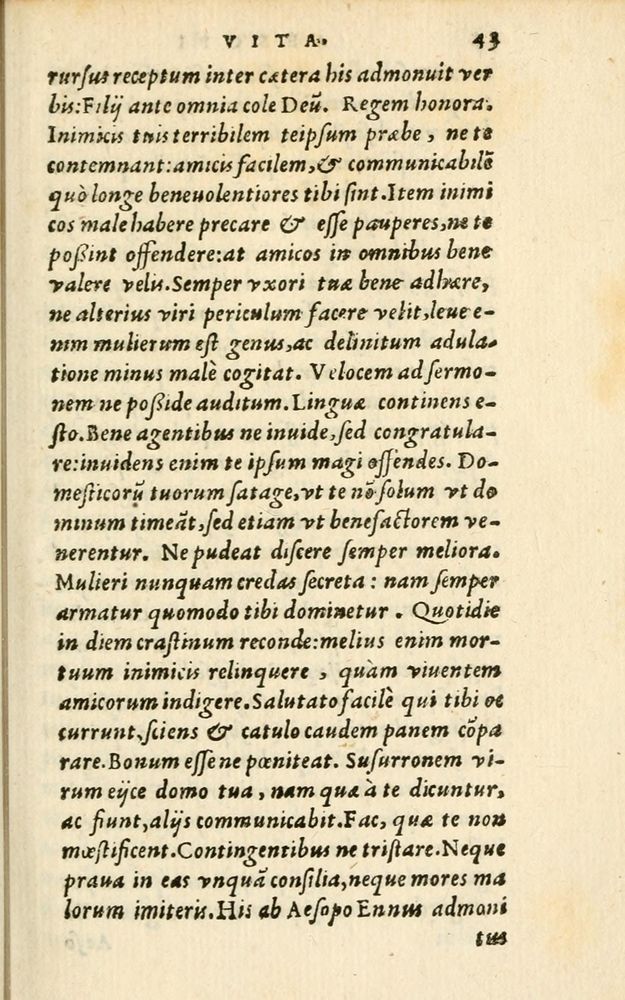 VITA. 43
rursus receptum inter cætera his admonuit ver
bis:Filij ante omnia cole Deũ. Regem honora.
Inimicis tuis terribilem teipsum præbe, ne te
contemnant:amicis facilem,& communicabilẽ
quò longe beneuolentiores tibi sint.Item inimi
cos male habere precare & esse pauperes,ne te
poßint offendere:at amicos in omnibus bene
valere velis.Semper vxori tuæ bene adhære,
ne alterius viri periculum facere velit,leue e-
nim mulierum est genus,ac delinitum adula-
tione minus malè cogitat. Velocem ad sermo-
nem ne poßide auditum.Linguæ continens e-
sto.Bene agentibus ne inuide,sed congratula-
re:inuidens enim te ipsum magi offendes. Do-
mesticorũ tuorum satage,vt te nõ solum vt do
minum timeãt,sed etiam vt benefactorem ve-
nerentur. Ne pudeat discere semper meliora.
Mulieri nunquam credas secreta: nam semper
armatur quomodo tibi dominetur. Quotidie
in diem crastinum reconde:melius enim mor-
tuum inimicis relinquere, quàm viuentem
amicorum indigere.Salutato facilè qui tibi oc
currunt,sciens & catulo caudem panem cõpa
rare.Bonum esse ne pœniteat. Susurronem vi-
rum eijce domo tua, nam quæ à te dicuntur,
ac fiunt,alijs communicabit.Fac, quæ te non
mœstificent.Contingentibus ne tristare.Neque
praua in eas vnquã consilia,neque mores ma
lorum imiteris.His ab Aesopo Ennus admoni
tus